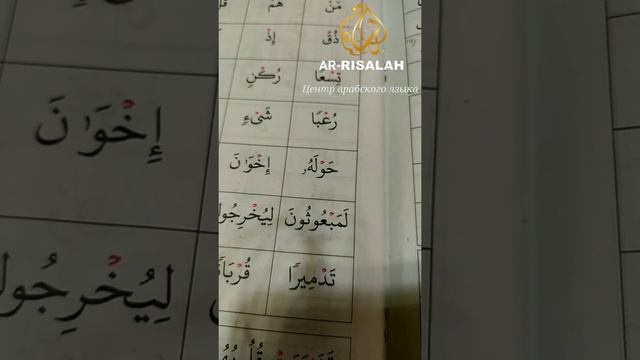 مَنْ هُمْ
AR-RISALAH
Центр арабского языка
ذُقْ إِذْ
تِسْعًا رُكْنِ
رُعْبًا شَىْءٍ
حَوْلَهُۥ إِخْوَٰنَ
لَمَبْعُوثُونَ لِيُخْرِجُوا
تَدْمِيرًا
إِخْوَٰنَ